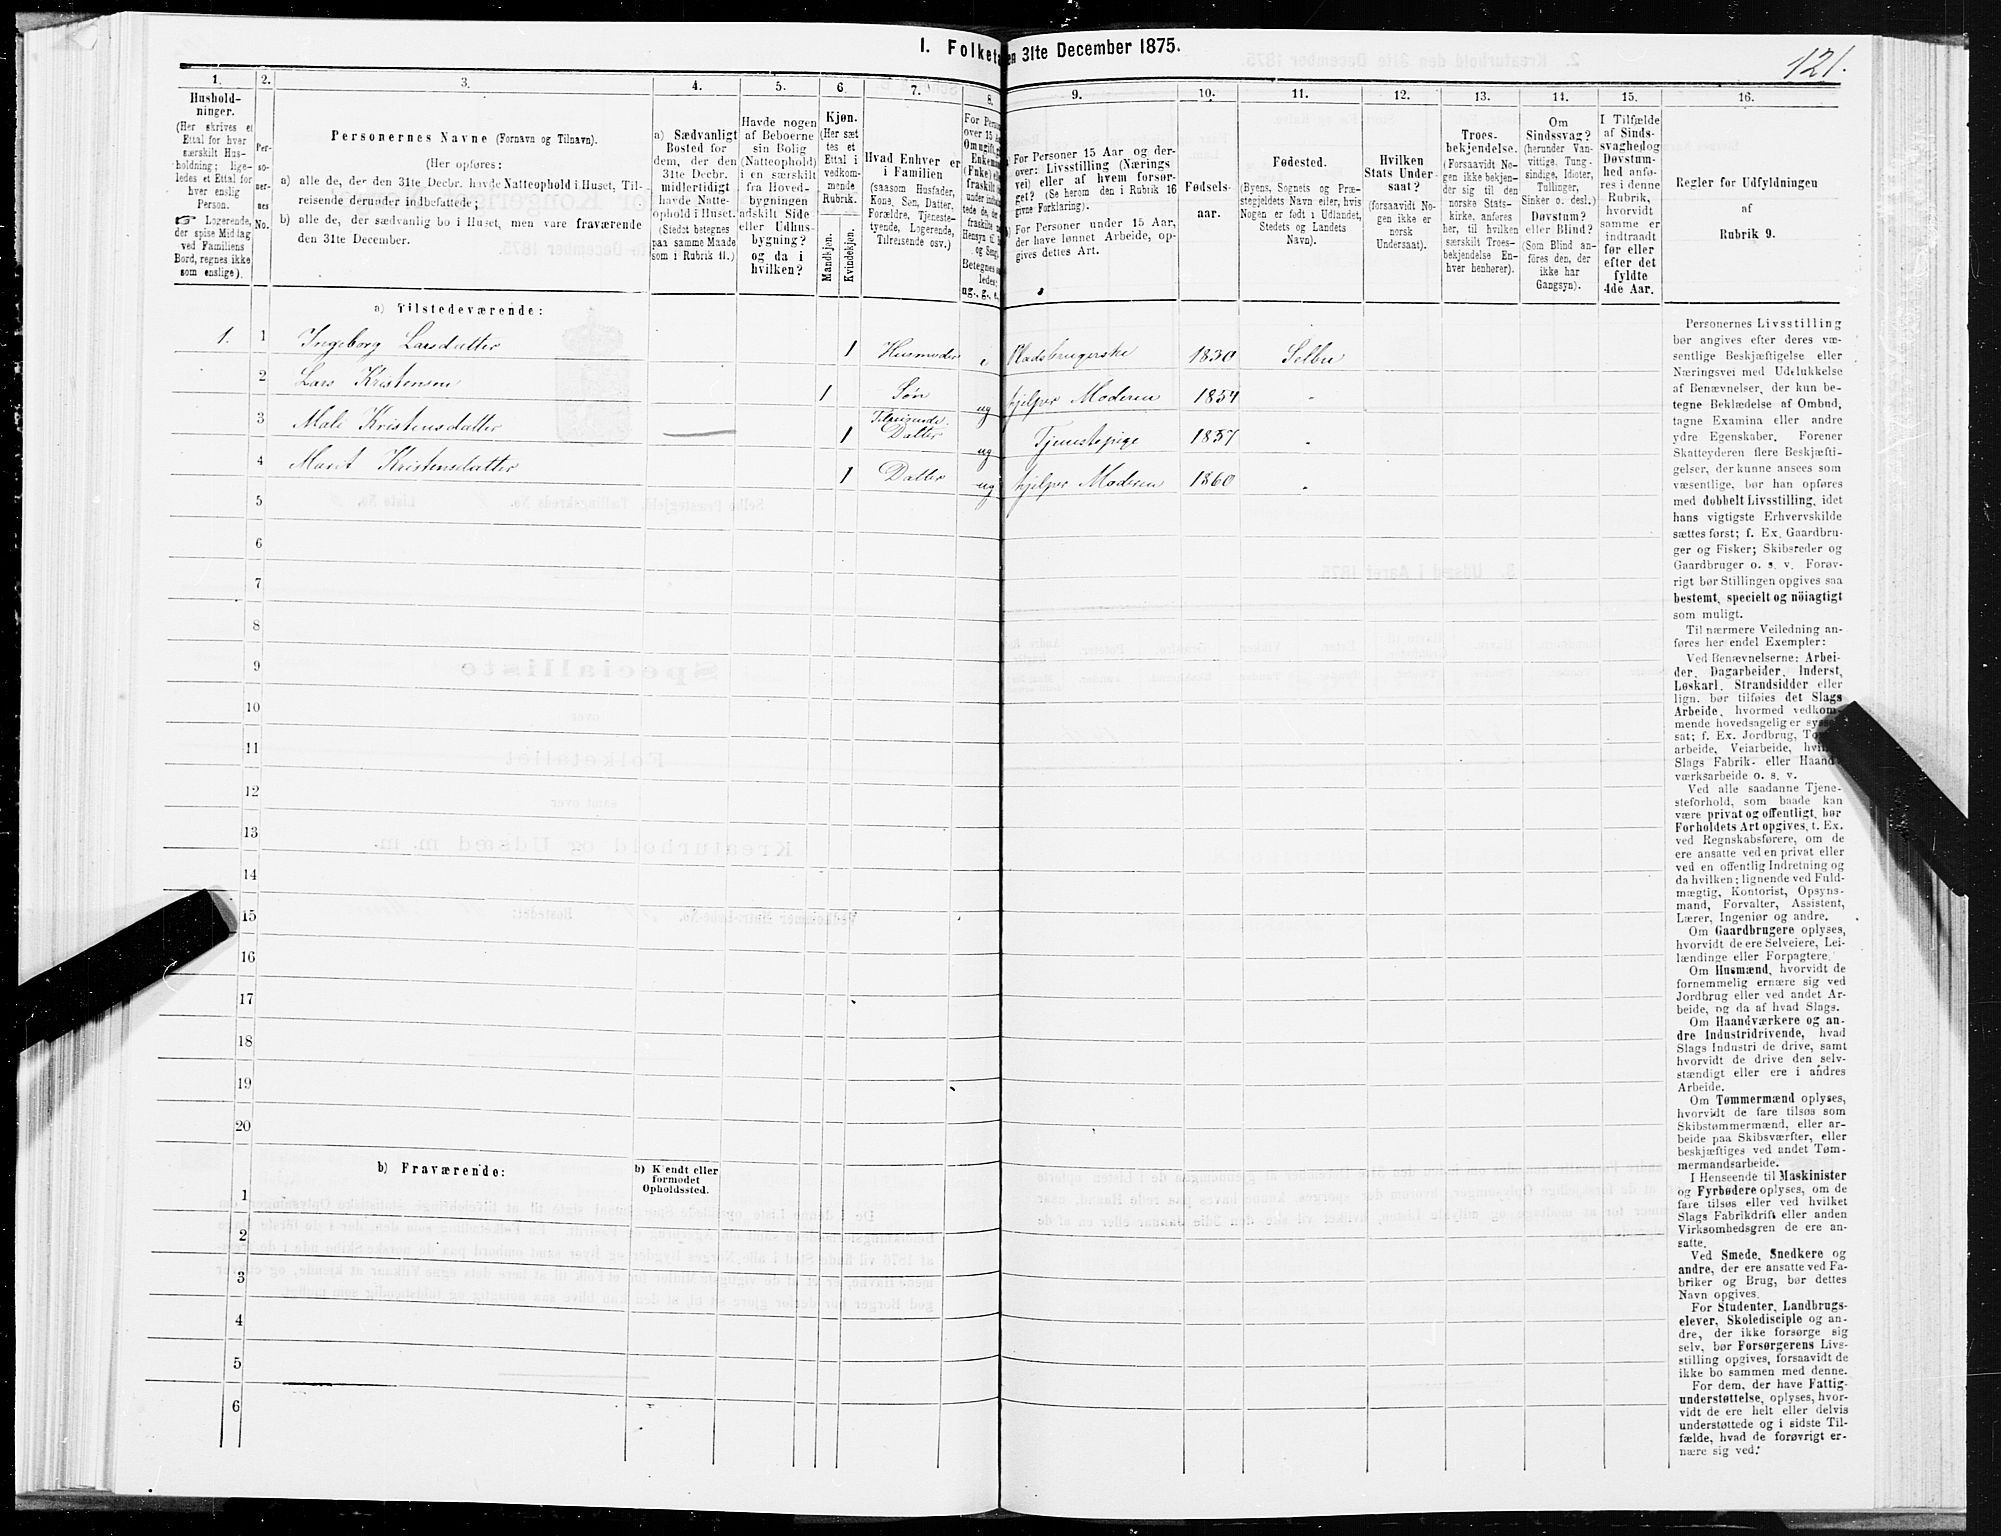 1. Folketa
en 31te December 1875.
121.
1. 2. 3. 4. 5. 6. 7. 8. 9. 10. 11. 12. 13. 14. 15. 16.
Hushold-
ninger.
(Her skrives et
Ettal for hver
særskilt Hus-
holdning; lige-
ledes et Ettal for
hver enslig
Person.
☞ Logerende,
der spise Middag
ved Familiens
Bord, regnes ikke
som enslige).
Per-
so-
ner-
nes
No.
Personernes Navne (Fornavn og Tilnavn).
(Her opføres:
a) alle de, der den 31te Decbr. havde Natteophold i Huset, Til-
reisende derunder indbefattede;
b) alle de, der sædvanlig bo i Huset, men vare fraværende
den 31te December.
a) Sædvanligt
Bosted for
dem, der den
31te Decbr.
midlertidigt
havde Natte-
ophold i Huset.
(Stedet betegnes
paa samme Maade
som i Rubrik 11.)
Havde nogen
af Beboerne
sin Bolig
(Natteophold)
i en særskilt
fra Hoved-
bygningen
adskilt Side
eller Udhus-
bygning?
og da i
hvilken?
Kjøn.
(Her sæt
tes et
Ettal i
vedkom-
mende
Rubrik.
Mandkjøn.
Kvindekjøn.
Hvad Enhver er
i Familien
(saasom Husfader,
Kone, Søn, Datter,
Forældre, Tjeneste-
tyende, Logerende,
Tilreisende osv.)
For Person
over 15 Aar
Om ugift, g
Enkem
(Fnke) elle
fraskilt
Hensyn til
og Seng.
Betegnes s
ledes:
ug., g., e.,
a) For Personer 15 Aar og der-
over: Livsstilling (Nærings
vei) eller af hvem forsør-
get? (Se herom den i Rubrik 16
givne Forklaring).
b) For Personer under 15 Aar,
der have lønnet Arbeide, op-
gives dettes Art.
Fødsels-
aar.
Fødested.
(Byens, Sognets og Præ-
stegjeldets Navn eller, hvis
Nogen er født i Udlandet,
Stedets og Landets
Navn).
Hvilken
Stats Under-
saat?
(forsaavidt No-
gen ikke er
norsk
Undersaat).
Troes-
bekjendelse.
(Forsaavidt No-
gen ikke bekjen-
der sig til den
norske Stats-
kirke, anføres
her, til hvilken
særskilt Troes-
bekjendelse En-
hver henhører).
Om
Sindssvag?
(herunder Van-
vittige, Tung-
sindige, Idioter,
Tullinger,
Sinker o. desl.)
Døvstum?
eller Blind?
(Som Blind an-
føres den, der
ikke har
Gangsyn).
I Tilfælde
af Sinds-
svaghedog
Døvstum-
hed anfø-
res i denne
Rubrik,
hvorvidt
samme er
indtraadt
før eller
efter det
fyldte
4de Aar.
Regler for Udfyldningen
af
Rubrik 9.
a) Tilstedeværende:
1. 1 Ingeborg Larsdatter 1 Husmoder e Pladsbrugerske 1830 Selbu
2 Lars Kristensen 1 Søn ug hjelper Moderen 1854 "
3 Mali Kristensdatter 1 Tilreisende Datter ug Tjenestepige 1857 "
4 Marit Kristensdatter 1 Datter ug hjelper Moderen 1860 "
5
6
7
8
9
10
11
12
13
14
15
16
17
18
19
20
b) Fraværende:
b) Kjendt eller
formodet
Opholdssted.
1
2
3
4
5
6
Personernes Livsstilling
bør angives efter deres væ-
sentlige Beskjæftigelse eller
Næringsvei med Udelukkelse
af Benævnelser, der kun be-
tegne Beklædelse af Ombud,
tagne Examina eller andre
ydre Egenskaber. Forener
Skatteyderen flere Beskjæfti-
gelser, der kunne ansees som
væsentlige, bør han opføres
med dobbelt Livsstilling, idet
hans vigtigste Erhvervskilde
sættes først; f. Ex. Gaardbru-
ger og Fisker; Skibsreder og
Gaardbruger o. s. v. Forøv-
rigt bør Stillingen opgives saa
bestemt, specielt og nöiagtigt
som muligt.
Til nærmere Veiledning an-
føres her endel Exempler:
Ved Benævnelserne: Arbei-
der, Dagarbeider, Inderst,
Løskarl, Strandsidder eller
lign. bør tilføies det Slags
Arbeide, hvormed vedkom-
mende hovedsagelig er syssel
sat; f. Ex. Jordbrug, Tom
arbeide, Veiarbeide, hvil
Slags Fabrik- eller Haand-
værksarbeide o. s. v.
Ved alle saadanne Tjene-
steforhold, som baade kan
være privat og offentligt, bør
Forholdets Art opgives, t. Ex.
ved Regnskabsførere, om de
ere ansatte ved en privat eller
ved en offentlig Indretning og
da hvilken; lignende ved Fuld-
mægtig, Kontorist, Opsyns-
mand, Forvalter, Assistent,
Lærer, Ingeniør og andre.
Om Gaardbrugere oplyses,
hvorvidt de ere Selveiere, Lei-
lændinge eller Forpagtere.
Om Husmænd, hvorvidt de
fornemmelig ernære sig ved
Jordbrug eller ved andet Ar-
beide, og da af hvad Slags.
Om Haandværkere og an-
dre Industridrivende, hvad
Slags Industri de drive, samt
hvorvidt de drive den selv-
stændigt eller ere i andres
Arbeide.
Om Tømmermænd oplyses,
hvorvidt de fare tilsøs som
Skibstømmermænd, eller ar-
beide paa Skibsværfter, eller
beskjæftiges ved andet Tøm-
mermandsarbeide.
I Henseende til Maskinister
og Fyrbødere oplyses, om de
fare tilsøs eller ved hvilket
Slags Fabrikdrift eller anden
Virksomhedsgren de ere an-
satte.
Ved Smede, Snedkere og
andre, der ere ansatte ved Fa-
briker og Brug, bør dettes
Navn opgives.
For Studenter, Landbrugs-
elever, Skoledisciple og an-
dre, der ikke forsørge sig
selv, bør Forsørgerens Livs-
stilling opgives, forsaavidt de
ikke bo sammen med denne.
For dem, der have Fattig-
understøttelse, oplyses, hvor-
vidt de ere helt eller delvis
understøttede og i sidste Til-
fælde, hvad de forøvrigt er-
nære sig ved.